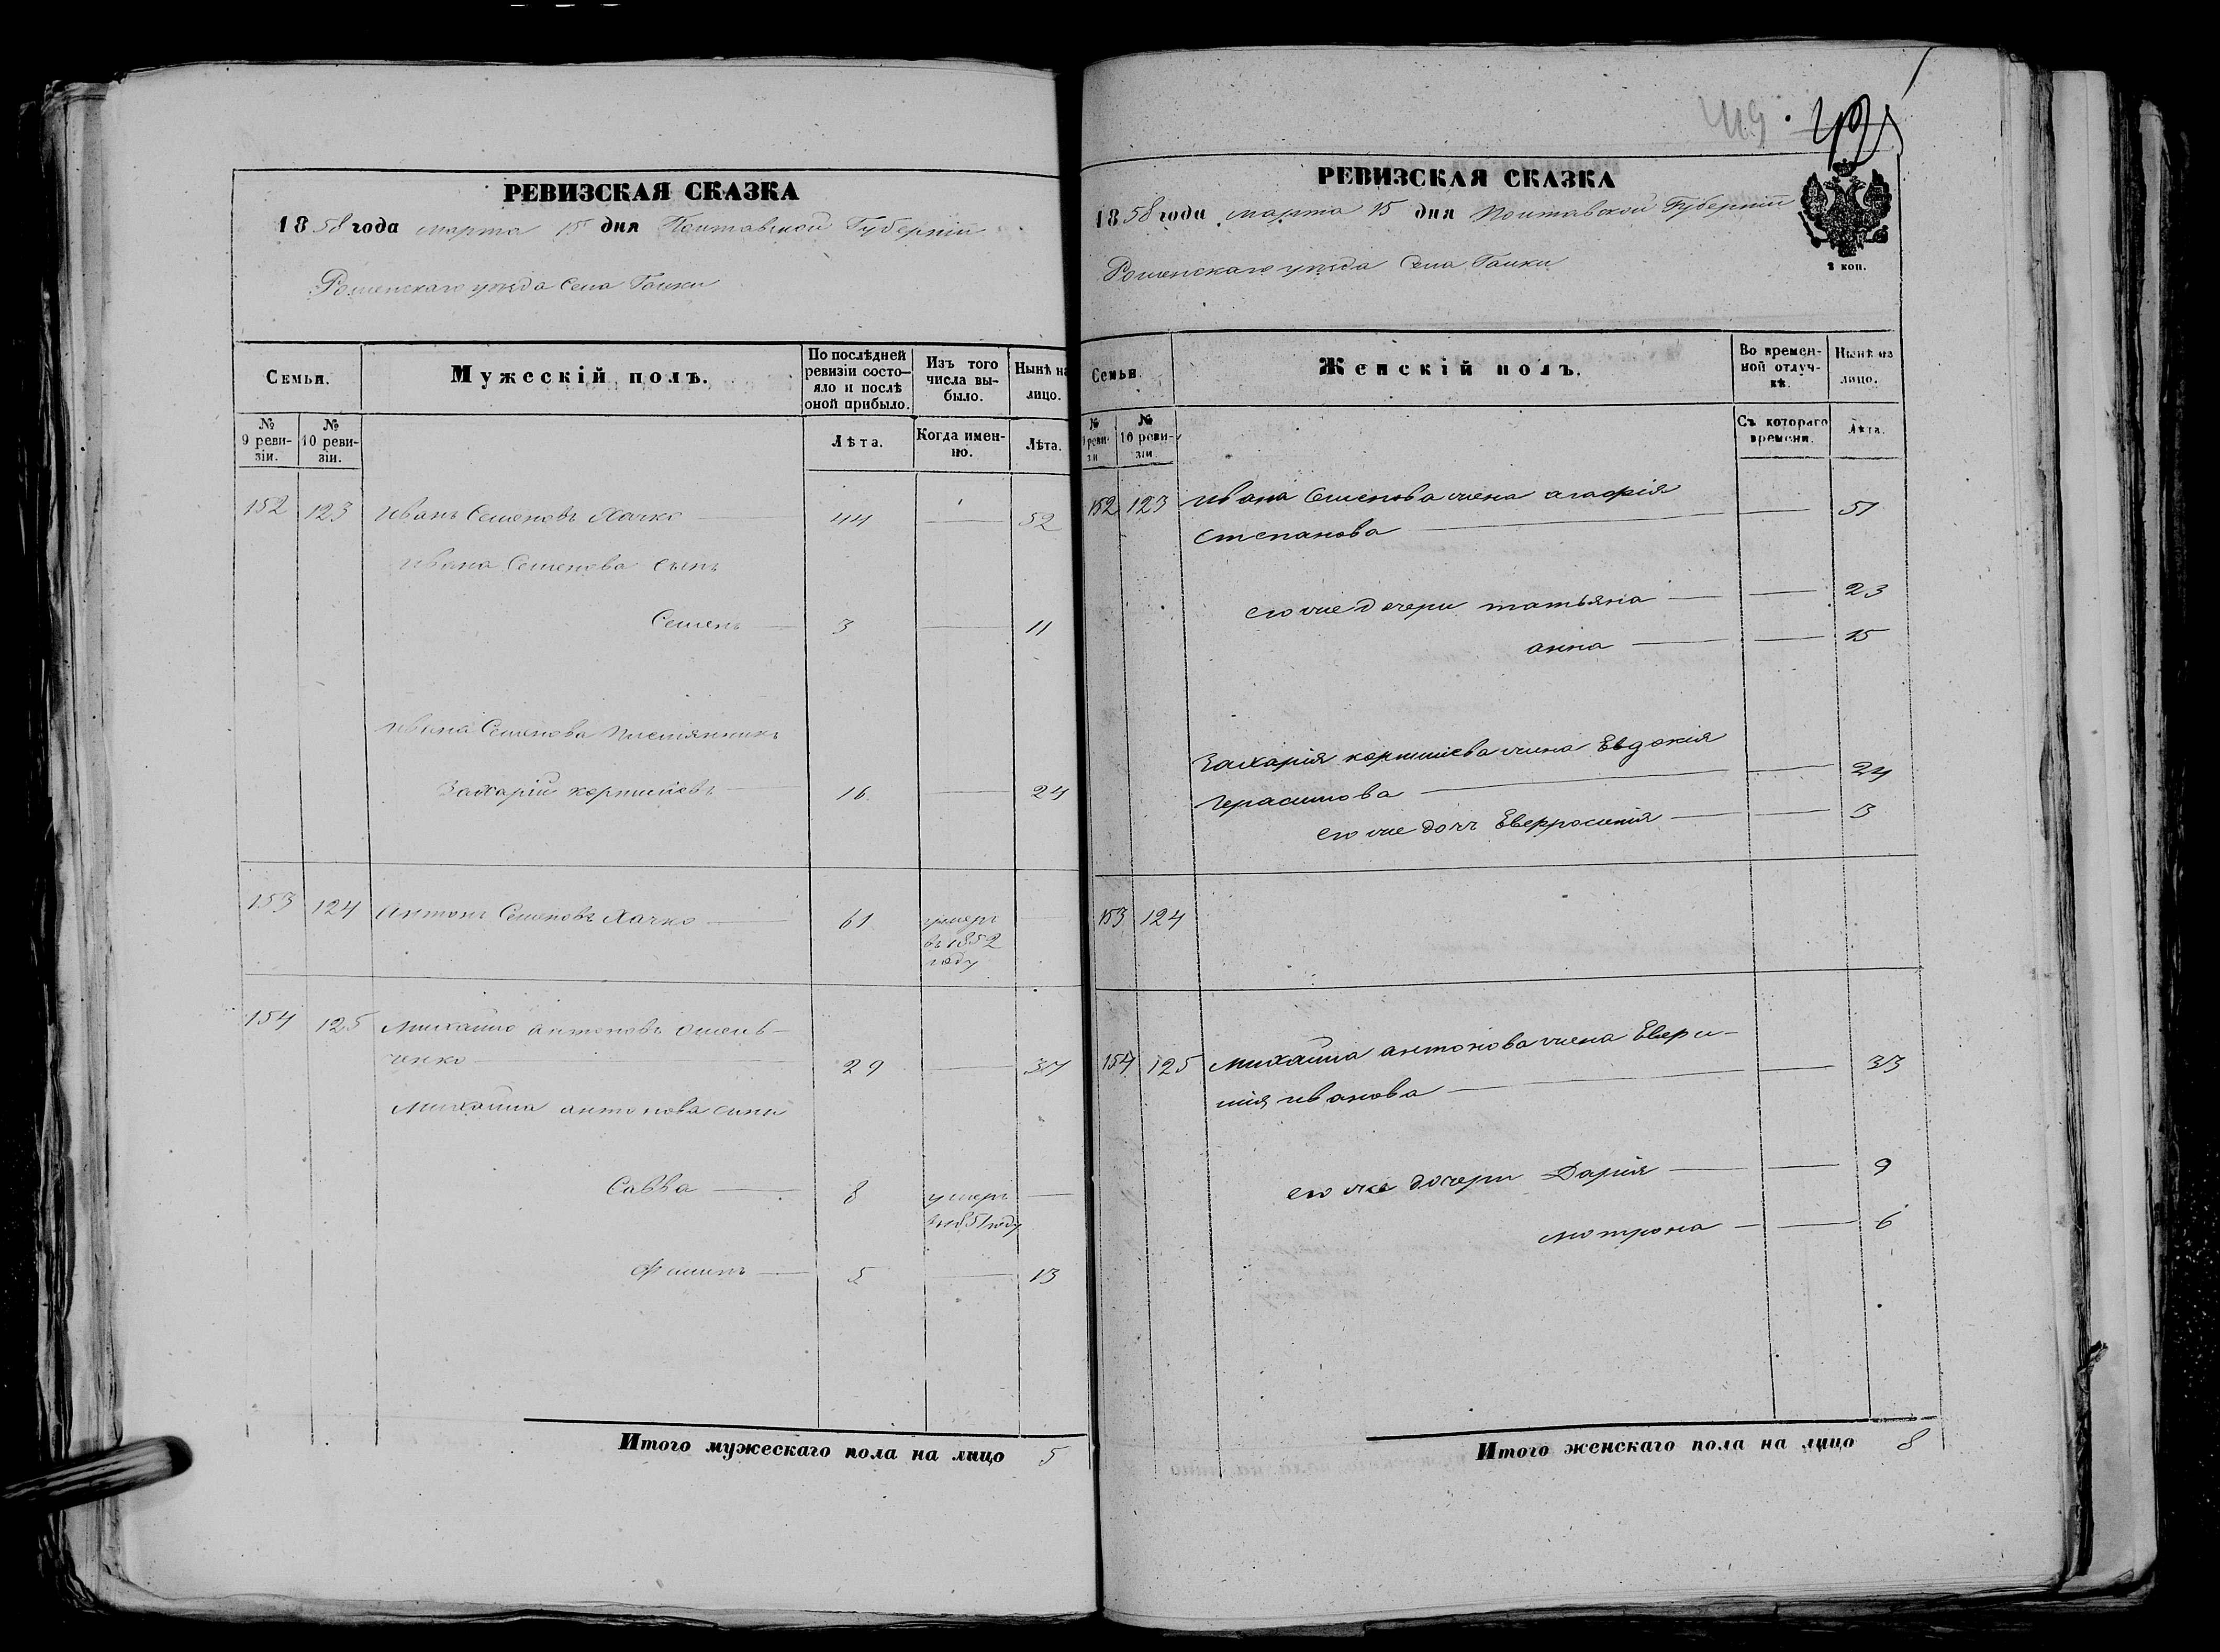 РЕВИЗСКАЯ СКАЗКА
1858 года марта 15 дня Полтавской Губерніи
Роменскаго уѣзда Села Галки
Семьи.
Мужескій полъ.
По послѣдней ревизіи состо-
яло и послѣ
оной прибыло.
Изъ того
числа вы-
было.
Нынѣ на
лицо.
№
9 реви-
зіи.
№
10 реви-
зіи.
Лѣта.
Когда имен-
но.
Лѣта.
152 123 Иванъ Семеновъ Хачко 44 52
Ивана Семенова сынъ
Семенъ 3 11
Ивана Семенова Племянникъ
Захарій 16 24
153 124 Антонъ Семеновъ Хачко 61 умеръ
въ 1852
году
154 125 Михайло антоновъ Омель-
ченко 29 37
Михайла антонова сыны
Савва 8 умеръ
в 1851 году
Филипъ 5 13
Итого мужескаго пола на лицо 5
49
РЕВИЗСКАЯ СКАЗКА
1858 года марта 15 дня Полтавской Губерніи
2 коп.
Роменскаго уѣзда Села Галки
Семьи.
Женскій полъ.
Во времен-
ной отлуч-
кѣ.
Нынѣ на
лицо.
№
9 реви-
зіи
№
10 реви-
зіи.
Съ котораго
времени.
Лѣта.
152 123 Ивана Семенова жена агафія
Степанова 51
его же дочери татьяна 23
анна 15
Захарія жена Евдокія
Герасимова 24
его же дочь Евфросинія 3
153 124
154 125 Михайла антонова жена Евфи-
мія иванова 33
его же дочери Дарія 9
мотрона 6
Итого женскаго пола на лицо 8